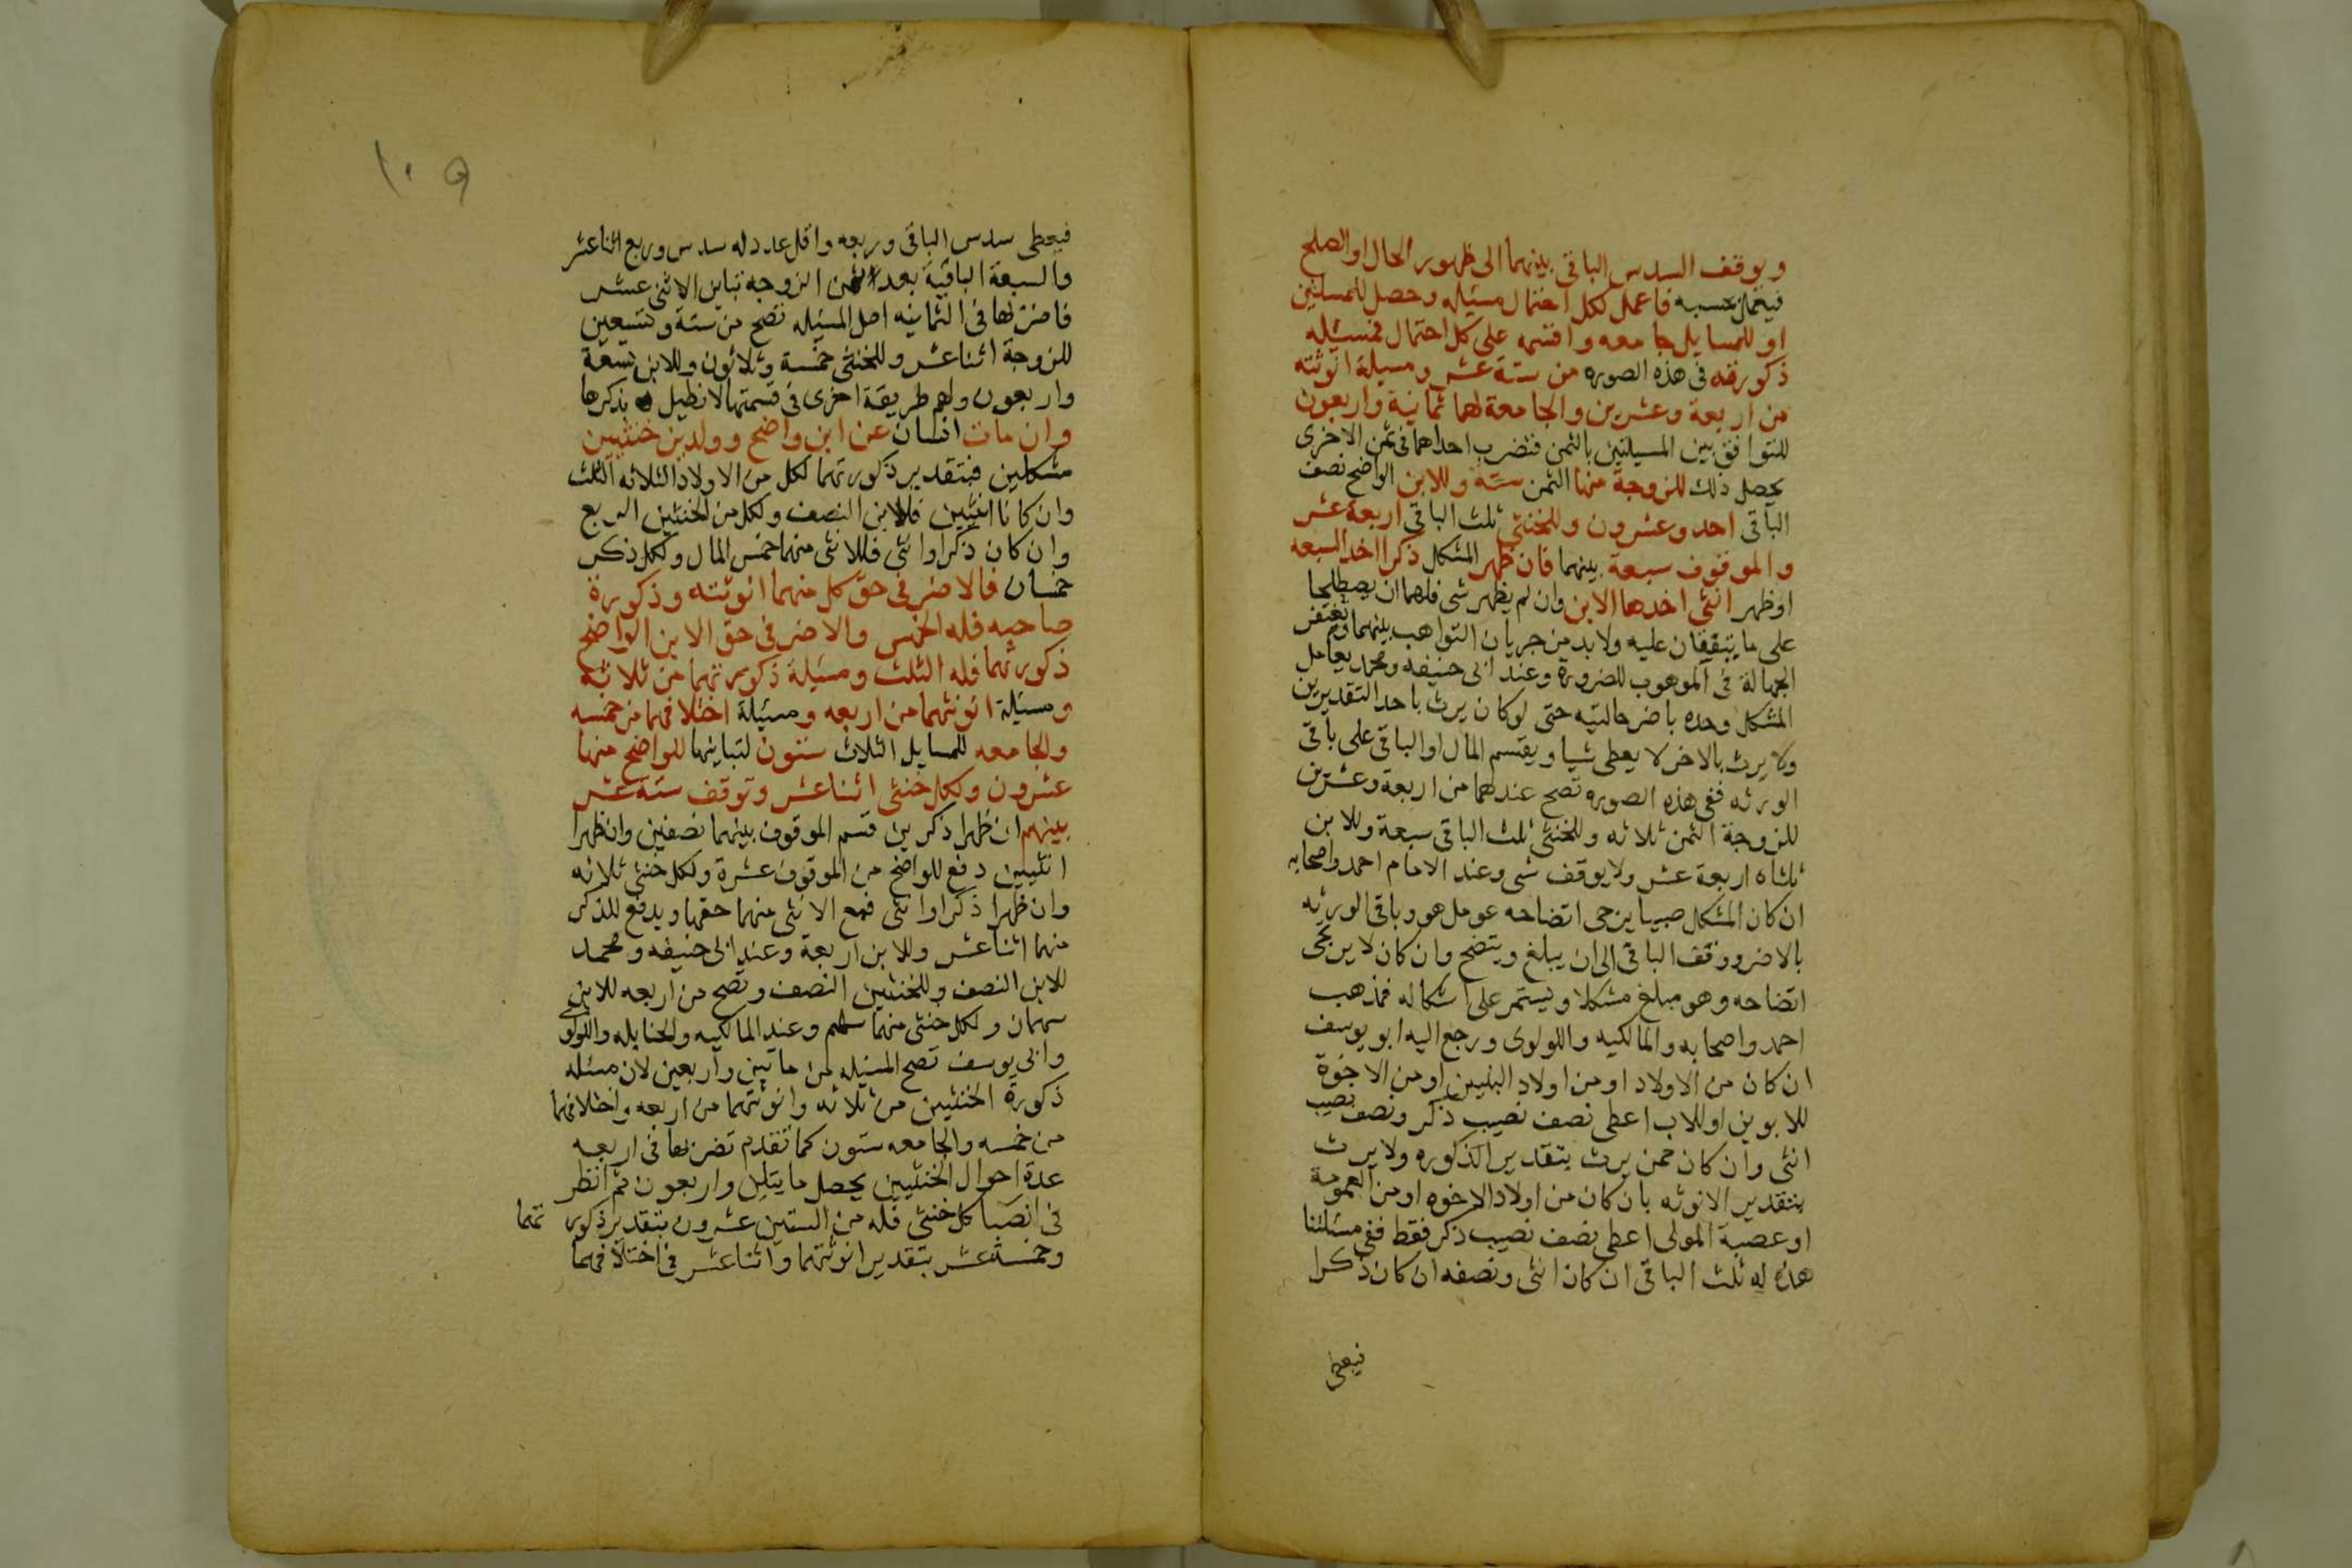 ويوقف السدس الباقى بينهما الى ظهور الحال او الصلح
فيعمل بحسبه فاعمل لكل احتمال مسئله وحصل للمسئلتين
او للمسايل جامعه واقسمه على كل احتمال فمسئله
ذكورته فى هذه الصوره من ستة عشر ومسيلة انوثته
من اربعة وعشرين والجامعة لهما ثمانية واربعون
للتوافق بين المسيلتين بالثمن فتضرب احداهما فى ثمن الاخرى
يحصل ذلك للزوجة منها الثمن ستة وللابن الواضح نصف
الباقى احد وعشرون وللخنثى ثلث الباقى اربعة عشر
والموقوف سبعة بينهما فان ظهر المشكل ذكرا اخذ السبعه
او ظهر انثى اخذها الابن وان لم يظهر شى فلهما ان يصطلحا
على ما يتفقان عليه ولا بد من جريان التواهب بينهما وتغتفر
الجهالة فى الموهوب للضرورة وعند ابى حنيفه ومحمد يعامل
المشكل وحده باضر حالتيه حتى لو كان يرث باحد التقديرين
ولا يرث بالاخر لا يعطى شيا ويقسم المال او الباقى على باقى
الورثه ففى هذه الصوره تصح عندهما من اربعة وعشرين
للزوجة الثمن ثلاثه وللخنثى ثلث الباقى سبعة وللابن
ثلثاه اربعة عشر ولا يوقف شى وعند الامام احمد واصحابه
ان كان المشكل صبيا يرجى اتضاحه عومل هو وباقى الورثه
بالاضر ووقف الباقى الى ان يبلغ ويتضح وان كان لا يرجى
اتضاحه وهو مبلغ مشكلا ويستمر على اشكاله فمذهب
احمد واصحابه والمالكيه واللولوى ورجع اليه ابو يوسف
ان كان من الاولاد او من اولاد البنين او من الاخوة
للابوين او للاب اعطى نصف نصيب ذكر ونصف نصيب
انثى وان كان ممن يرث بتقدير الذكوره ولا يرث
بتقدير الانوثه بان كان من اولاد الاخوه او من العمومة
او عصبة المولى اعطى نصف نصيب ذكر فقط ففى مسئلتنا
هذه له ثلث الباقى ان كان انثى ونصفه ان كان ذكرا
فيعطى
١٠٩
فيعطى سدس الباقى وربعه واقل عدد له سدس وربع اثنا عشر
والسبعة الباقية بعد ثمن الزوجه تباين الاثنى عشر
فاضربها فى الثمانيه اصل المسيله تصح من ستة وتسعين
للزوجة اثنا عشر وللخنثى خمسة وثلاثون وللابن تسعة
واربعون ولهم طريقة اخرى فى قسمتها لا نطيل بذكرها
وان مات انسان عن ابن واضح وولدين خنثيين
مشكلين فبتقدير ذكورتهما لكل من الاولاد الثلاثه الثلث
وان كانا انثيين فللابن النصف ولكل من الخنثيين الربع
وان كان ذكرا وانثى فللانثى منهما خمس المال ولكل ذكر
خمسان فالاضر فى حق كل منهما انوثته وذكورة
صاحبه فله الخمس والاضر فى حق الابن الواضح
ذكورتهما فله الثلث ومسيلة ذكورتهما من ثلاثه
ومسيلة انوثتهما من اربعه ومسئلة اختلافهما من خمسه
والجامعه للمسايل الثلاث ستون لتباينها للواضح منها
عشرون ولكل خنثى اثنا عشر وتوقف ستة عشر
بينهم ان ظهرا ذكرين قسم الموقوف بينهما نصفين وان ظهرا
انثيين دفع للواضح من الموقوف عشرة ولكل خنثى ثلاثه
وان ظهرا ذكرا وانثى فمع الانثى منهما حقها ويدفع للذكر
منهما اثنا عشر وللابن اربعة وعند ابى حنيفه ومحمد
للابن النصف وللخنثيين النصف وتصح من اربعه للابن
سهمان ولكل خنثى منهما سهم وعند المالكيه والحنابله واللولوى
وابى يوسف تصح المسيله من مايتين واربعين لان مسئله
ذكورة الخنثيين من ثلاثه وانوثتهما من اربعه واختلافهما
من خمسه والجامعه ستون كما تقدم تضربها فى اربعه
عدة احوال الخنثيين يحصل مايتان واربعون ثم انظر
فى انصبا كل خنثى فله من الستين عشرون بتقدير ذكور تهما
وخمسة عشر بتقدير انوثتهما واثنا عشر فى اختلافهما